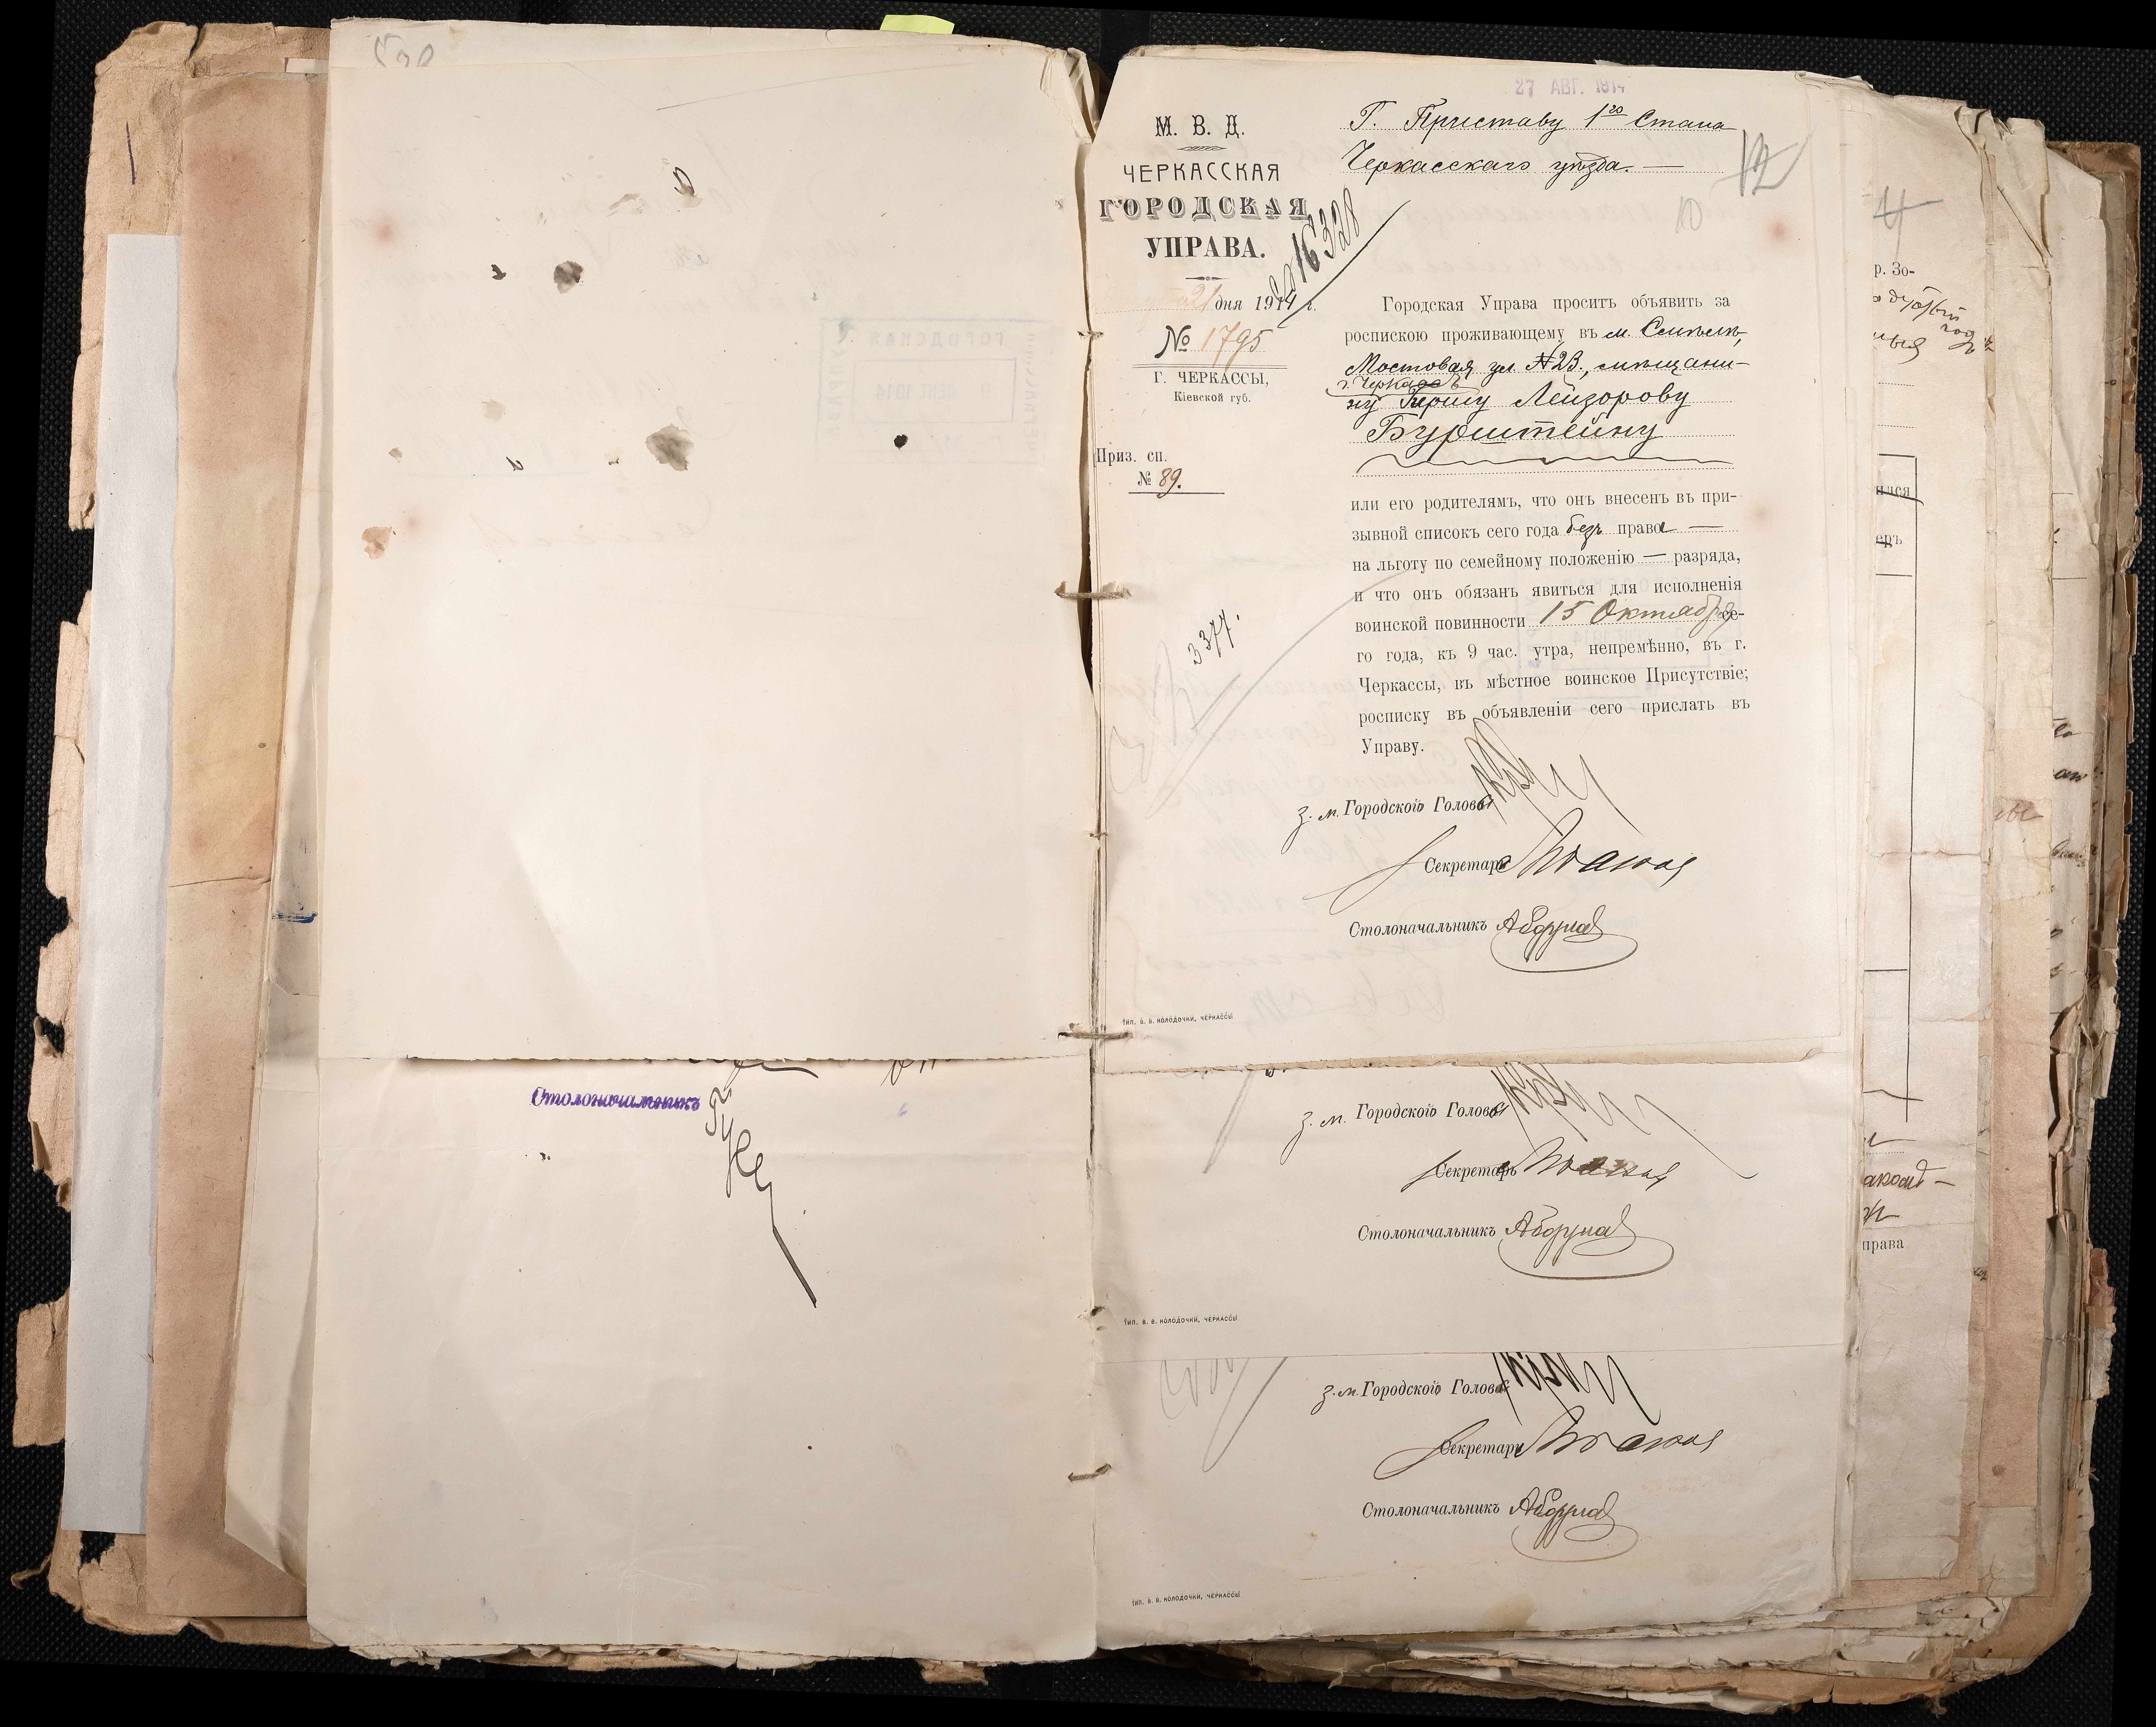 27 АВГ. 1914
М. В. Д.
ЧЕРКАССКАЯ
ГОРОДСКАЯ
УПРАВА.
21 дня 1914 г.
№ 1795
Г. ЧЕРКАССЫ,
Кіевской губ.
Приз. сп.
№ 89.
16328
3377.
Г. Приставу 1го Стана
Черкасскаго уѣзда. —
12
10
Городская Управа проситъ объявить за
роспискою проживающему въ м. Смѣлѣ,
Мостовая ул. № 23., мѣщани-
г. Черкассъ
ну Гершу Лейзорову
Бурштейну
или его родителямъ, что онъ внесенъ въ при-
зывной списокъ сего года безъ права —
на льготу по семейному положенію — разряда,
и что онъ обязанъ явиться для исполненія
воинской повинности 15 Октября се-
го года, къ 9 час. утра, непремѣнно, въ г.
Черкассы, въ мѣстное воинское Присутствіе;
росписку въ объявленіи сего прислать въ
Управу.
З. м. Городского Головы
Секретарь
Столоначальникъ
Тип. В. В. КОЛОДОЧКИ, ЧЕРКАССЫ
Столоначальникъ
З. м. Городского Головы
Секретарь
Столоначальникъ
Тип. В. В. КОЛОДОЧКИ, ЧЕРКАССЫ
З. м. Городского Головы
Секретарь
Столоначальникъ
Тип. В. В. КОЛОДОЧКИ, ЧЕРКАССЫ
4
р. Зо-
права